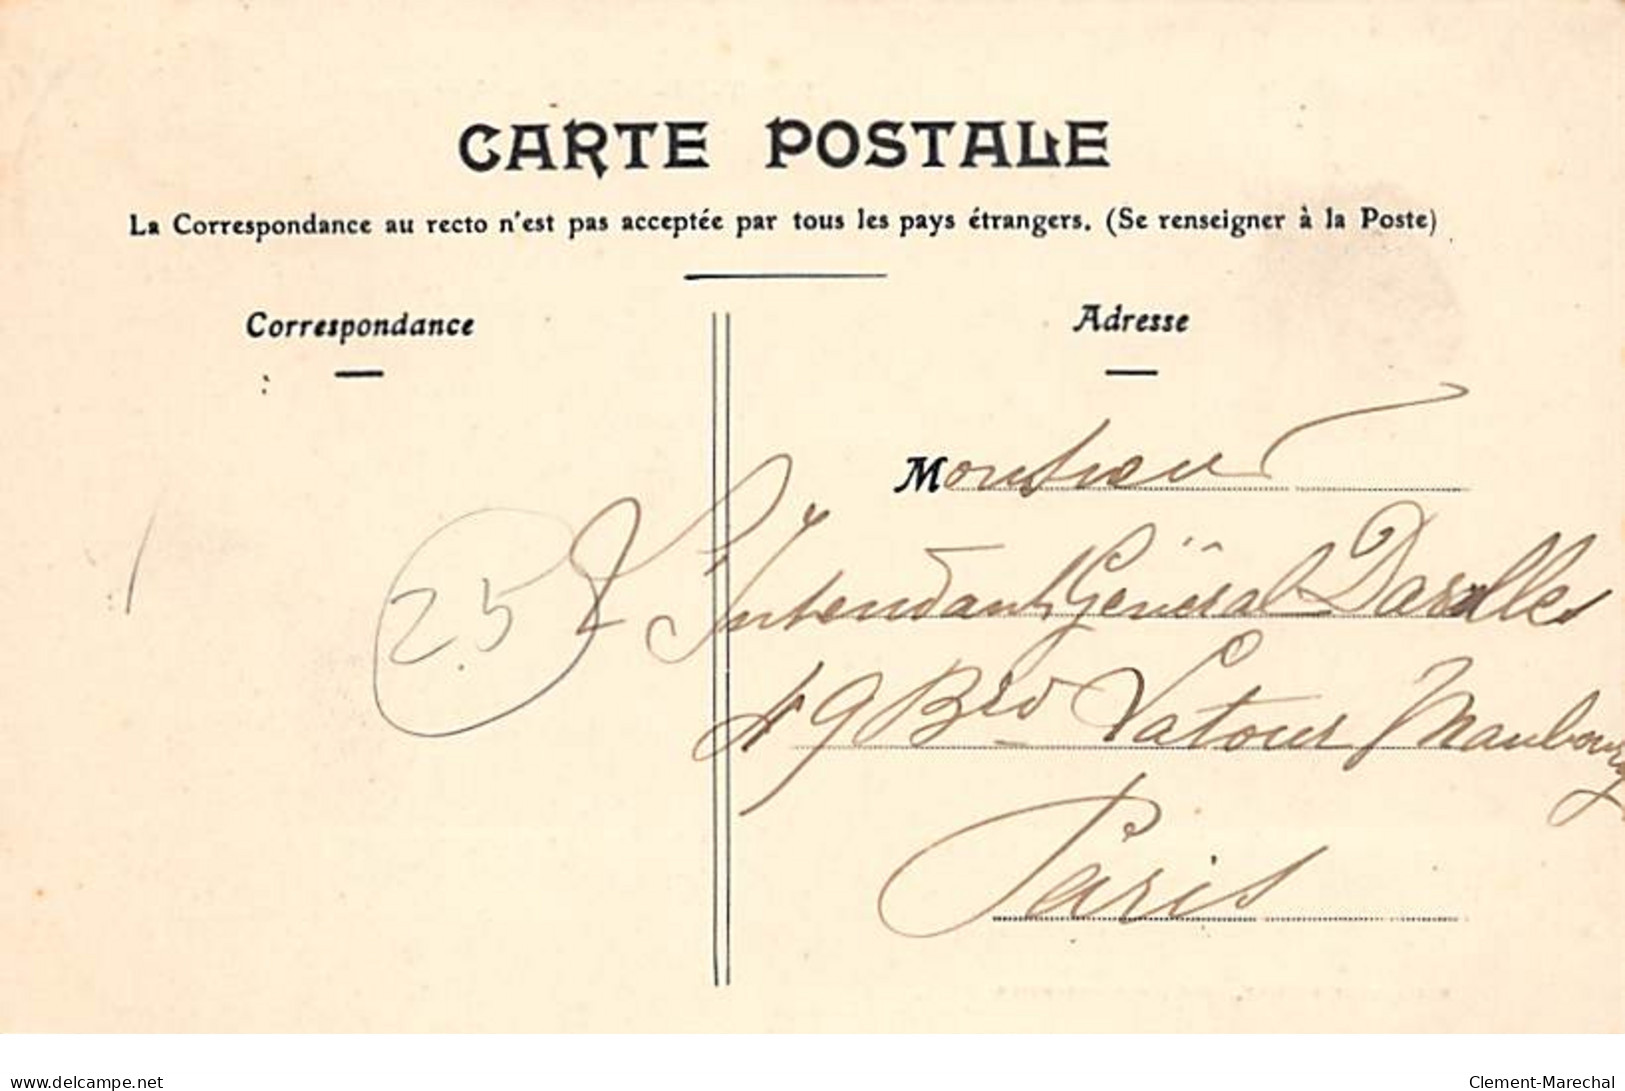 CARTE POSTALE
La Correspondance au recto n'est pas acceptée par tous les pays étrangers. (Se renseigner à la Poste)
Correspondance
Adresse
25
Monsieur
L'Intendant Général
49 Brd Latour Maubourg
Paris
delcampe.net
Clement-Marechal